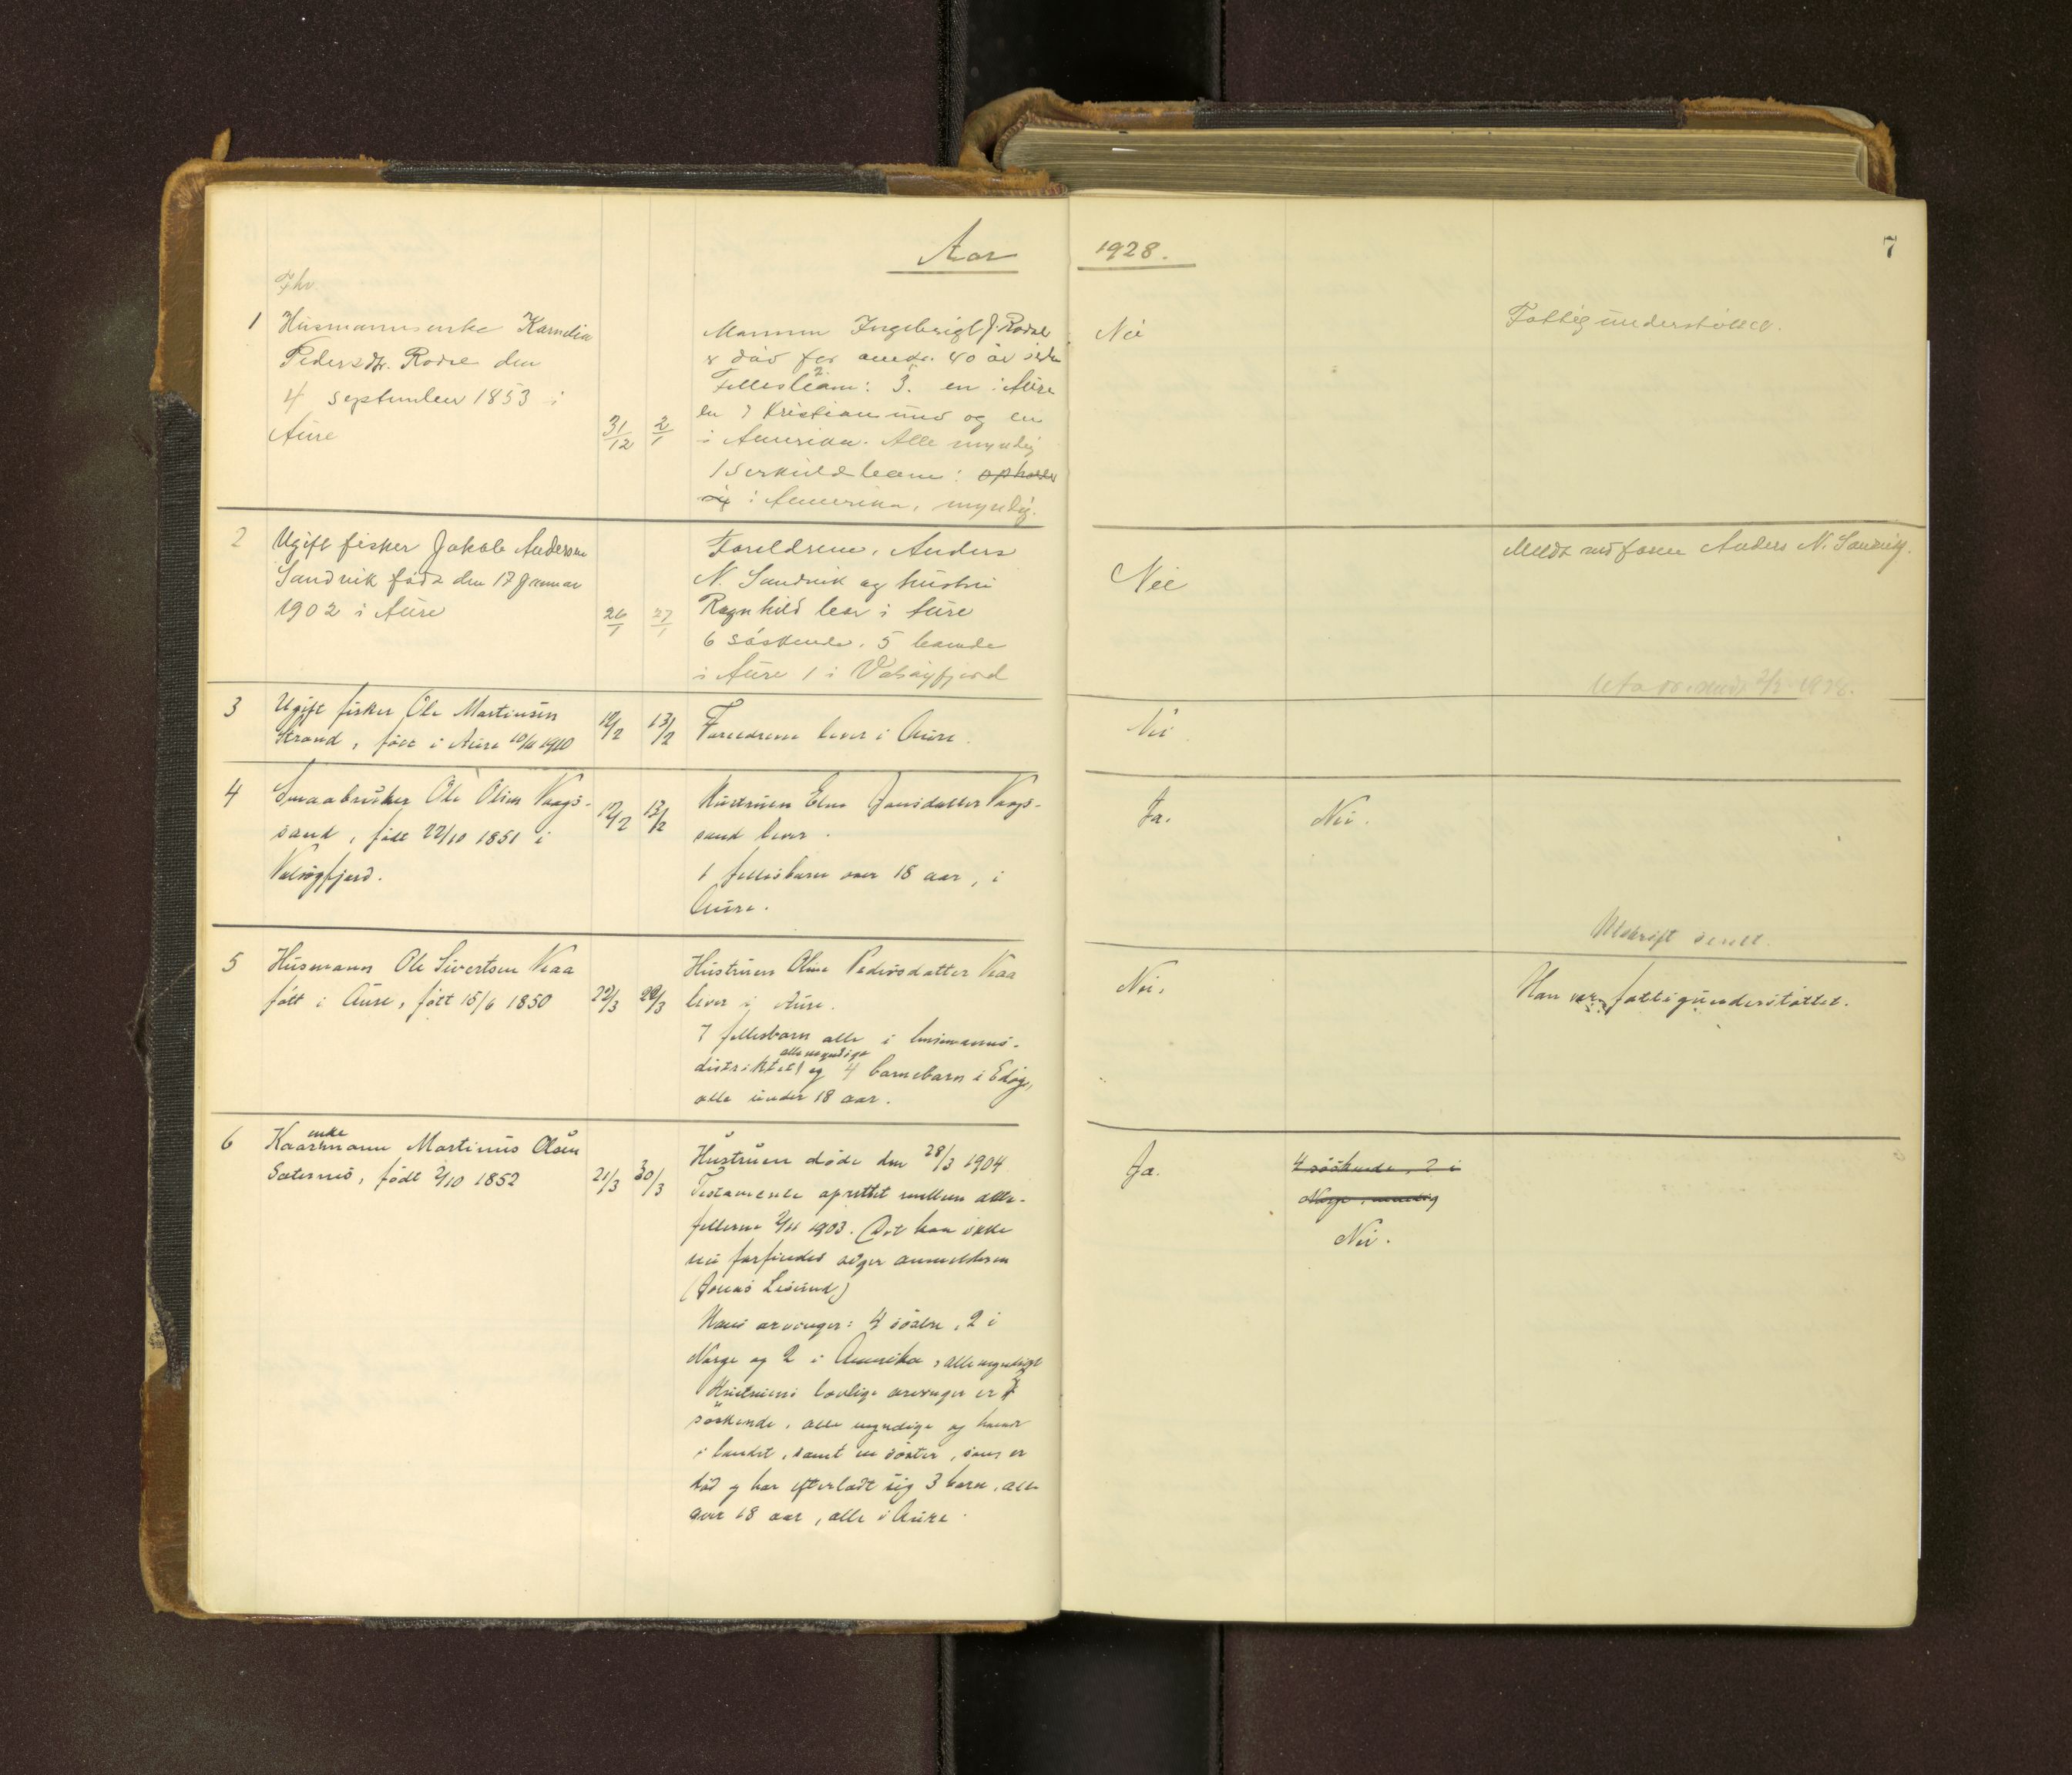 Aar 1928.
7
Fhv.
1 Husmannsenke Karnelia
Pedersdtr. Rodal den
4 september 1853 i
Aure
31/12 2/1
Mannen Ingebrigt J. Rodal
død for 40 år siden
Fellesbarn: 3. en i Aure
en i Kristiansund og en
i Amerika. Alle myndig
1 Serkuldbarn: opholder
sig i Amerika, myndig.
Nei
Fattigunderstøttet.
2 Ugift fisker Jakob Anderson
Sandvik født den 17 Januar
1902 i Aure
26/1 27/1
Foreldrene, Anders
N. Sandvik og hustru
Ragnhild bor i Aure
6 søskende. 5 boende
i Aure 1 i Valsøyfjord
Nei
Meldt ved faren Anders N. Sandvik.
1928.
3 Ugift fisker Ole Martinsen
Strand, født i Aure 10/11 1910
12/2 13/2
Foreldrene lever i Aure.
Nei
4 Smaabruker Ole Olsen Vaags-
sand, født 22/10 1851 i
Valsøyfjord.
12/2 13/2
Hustruen Elen Jansdatter Vaags-
sand lever.
1 fellesbarn over 18 aar, i
Aure.
Ja.
Nei.
Utskrift sendt.
5 Husmann Ole Sivertsen Vaa
født i Aure, født 15/6 1850
22/3 29/3
Hustruen Oline Pedersdatter Vaa
lever i Aure.
7 fellesbarn alle i lensmanns-
alle myndige
distriktet og 4 barnebarn i Edøy,
alle under 18 aar.
Nei.
Han var fattigunderstøttet.
enke
6 Kaarmann Martinus Olsen
Sæternes, født 2/10 1852
21/3 30/3
Hustruen døde den 28/3 1904
Testamente oprettet mellem ekte-
fellerne 2/11 1903. (Det kan ikke
nu forfindes siger anmelderen
(Jonas Lesund)
Hans arvinger: 4 søstre, 2 i
Norge og 2 i Amerika, alle myndige
Hustruens lovlige arvinger er 7
søskende, alle myndige og
i landet, samt en søster, som er
død og har efterladt sig 3 barn, alle
over 18 aar, alle i Aure.
Ja.
4 søskende, 2 i
Norge, myndig
Nei.